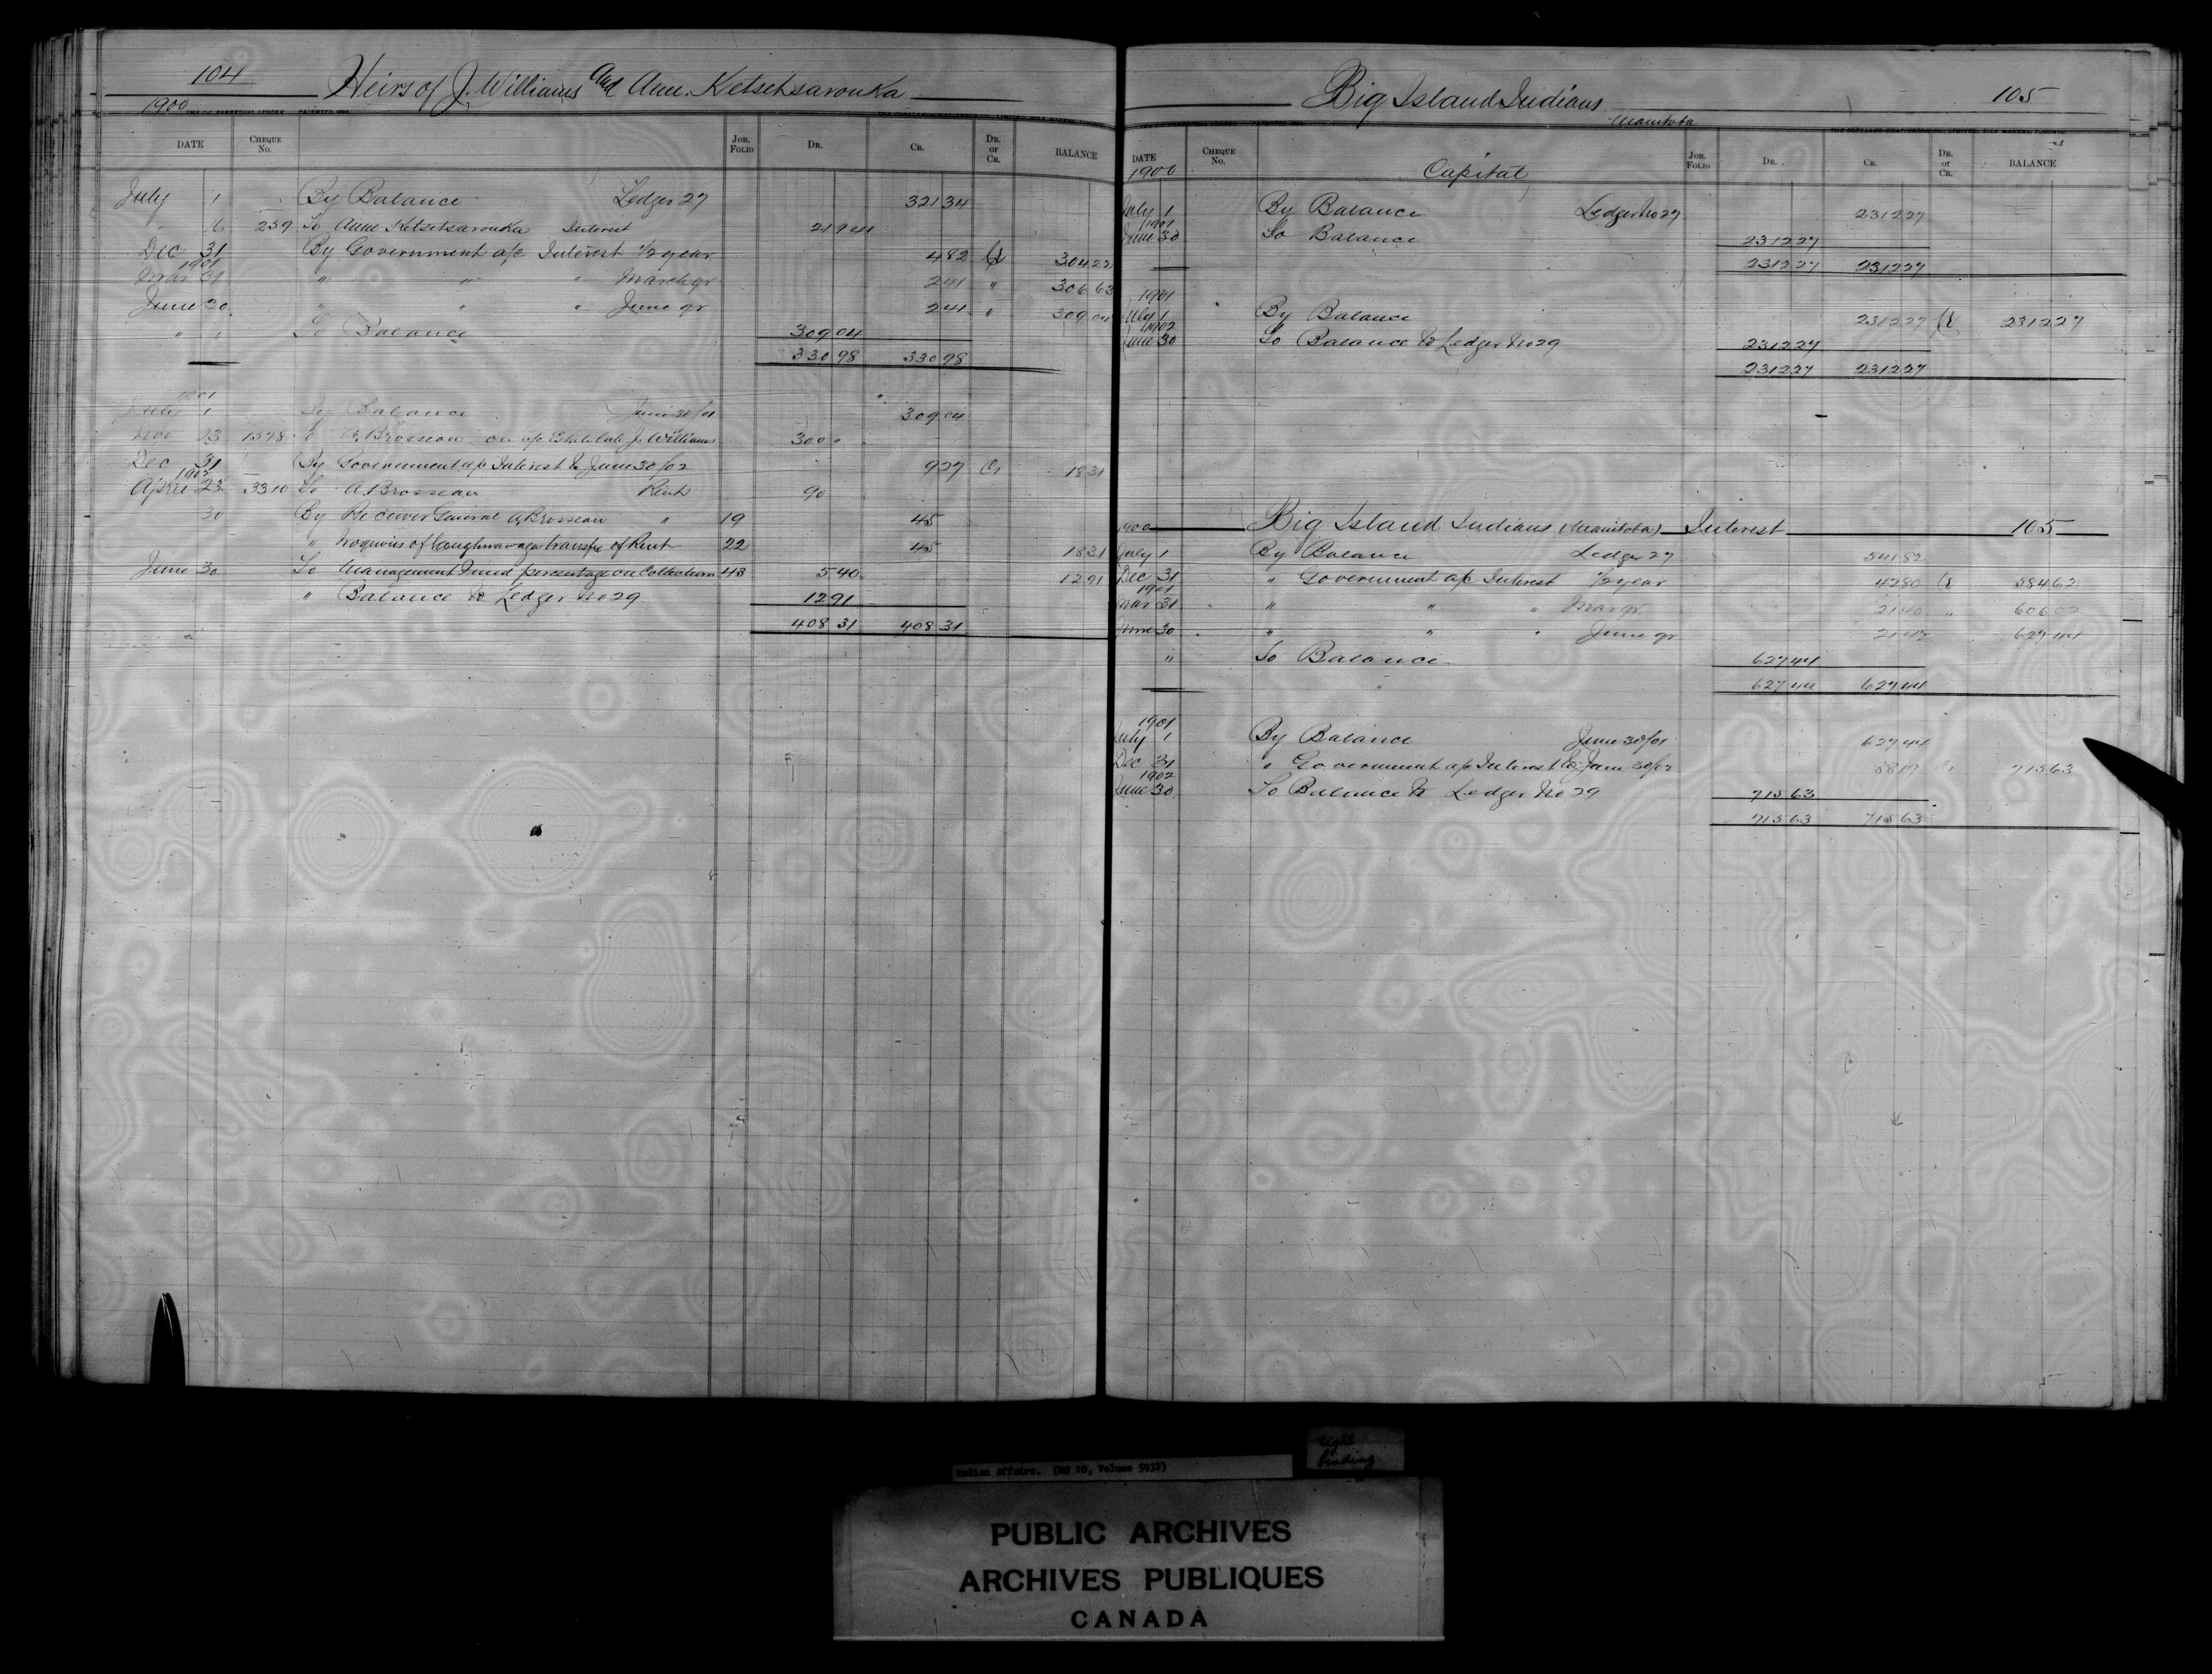 104 Heirs of J. Williams and Ann. Ketsetsarouka
1900
DATE CHEQUE No. JOR. FOLIO DR. CR. DR. or CR. BALANCE
July 1 By Balance Ledger 27 321 34
" 6 259 To Anne Ketsetsarouka Interest 21 94
Dec 31 By Government a/c Interest 1/2 year 4 82 Cr 304 22
1901
Mar 31 " " " March qr 2 41 " 306 63
June 30 " " " June qr 2 41 " 309 04
" " To Balance 309 04
330 98 330 98
1901
July 1 By Balance June 30/01 309 04
23 1398 To A. Brosseau on a/c Estate late J. Williams 300 "
Dec 31 By Government a/c Interest to June 30/02 9 27 Cr 18 31
1902
April 23 3310 To A. Brosseau Rent 90
30 By Receiver General A. Brosseau " 19 45
" of Caughnawaga transfer of Rent 22 45 18 31
June 30 To Management Fund percentage on Collections 43 5 40 12 91
" Balance to Ledger No 29 12 91
408 31 408 31
Big Island Indians 105
Manitoba
DATE CHEQUE No. JOR. FOLIO DR. CR. DR. or CR. BALANCE
1900 Capital
July 1 By Balance Ledger No 27 2312 27
1901
June 30 To Balance 2312 27
2312 27 2312 27
1901
July 1 By Balance 2312 27 Cr 2312 27
1902
June 30 To Balance to Ledger No 29 2312 27
2312 27 2312 27
1900 Big Island Indians (Manitoba) Interest 105
July 1 By Balance Ledger 27 541 82
Dec 31 " Government a/c Interest 1/2 year 42 80 Cr 584 62
1901
Mar 31 " " " Mar qr 21 40 " 606 02
June 30 " " " June qr 21 42 627 44
" To Balance 627 44
627 44 627 44
1901
July 1 By Balance June 30/01 627 44
Dec 31 " Government a/c Interest to June 30/02 88 19 Cr 715 63
1902
June 30 To Balance to Ledger No 29 715 63
715 63 715 63
Indian Affairs. (RG 10, Volume 5932)
tight
binding
PUBLIC ARCHIVES
ARCHIVES PUBLIQUES
CANADA